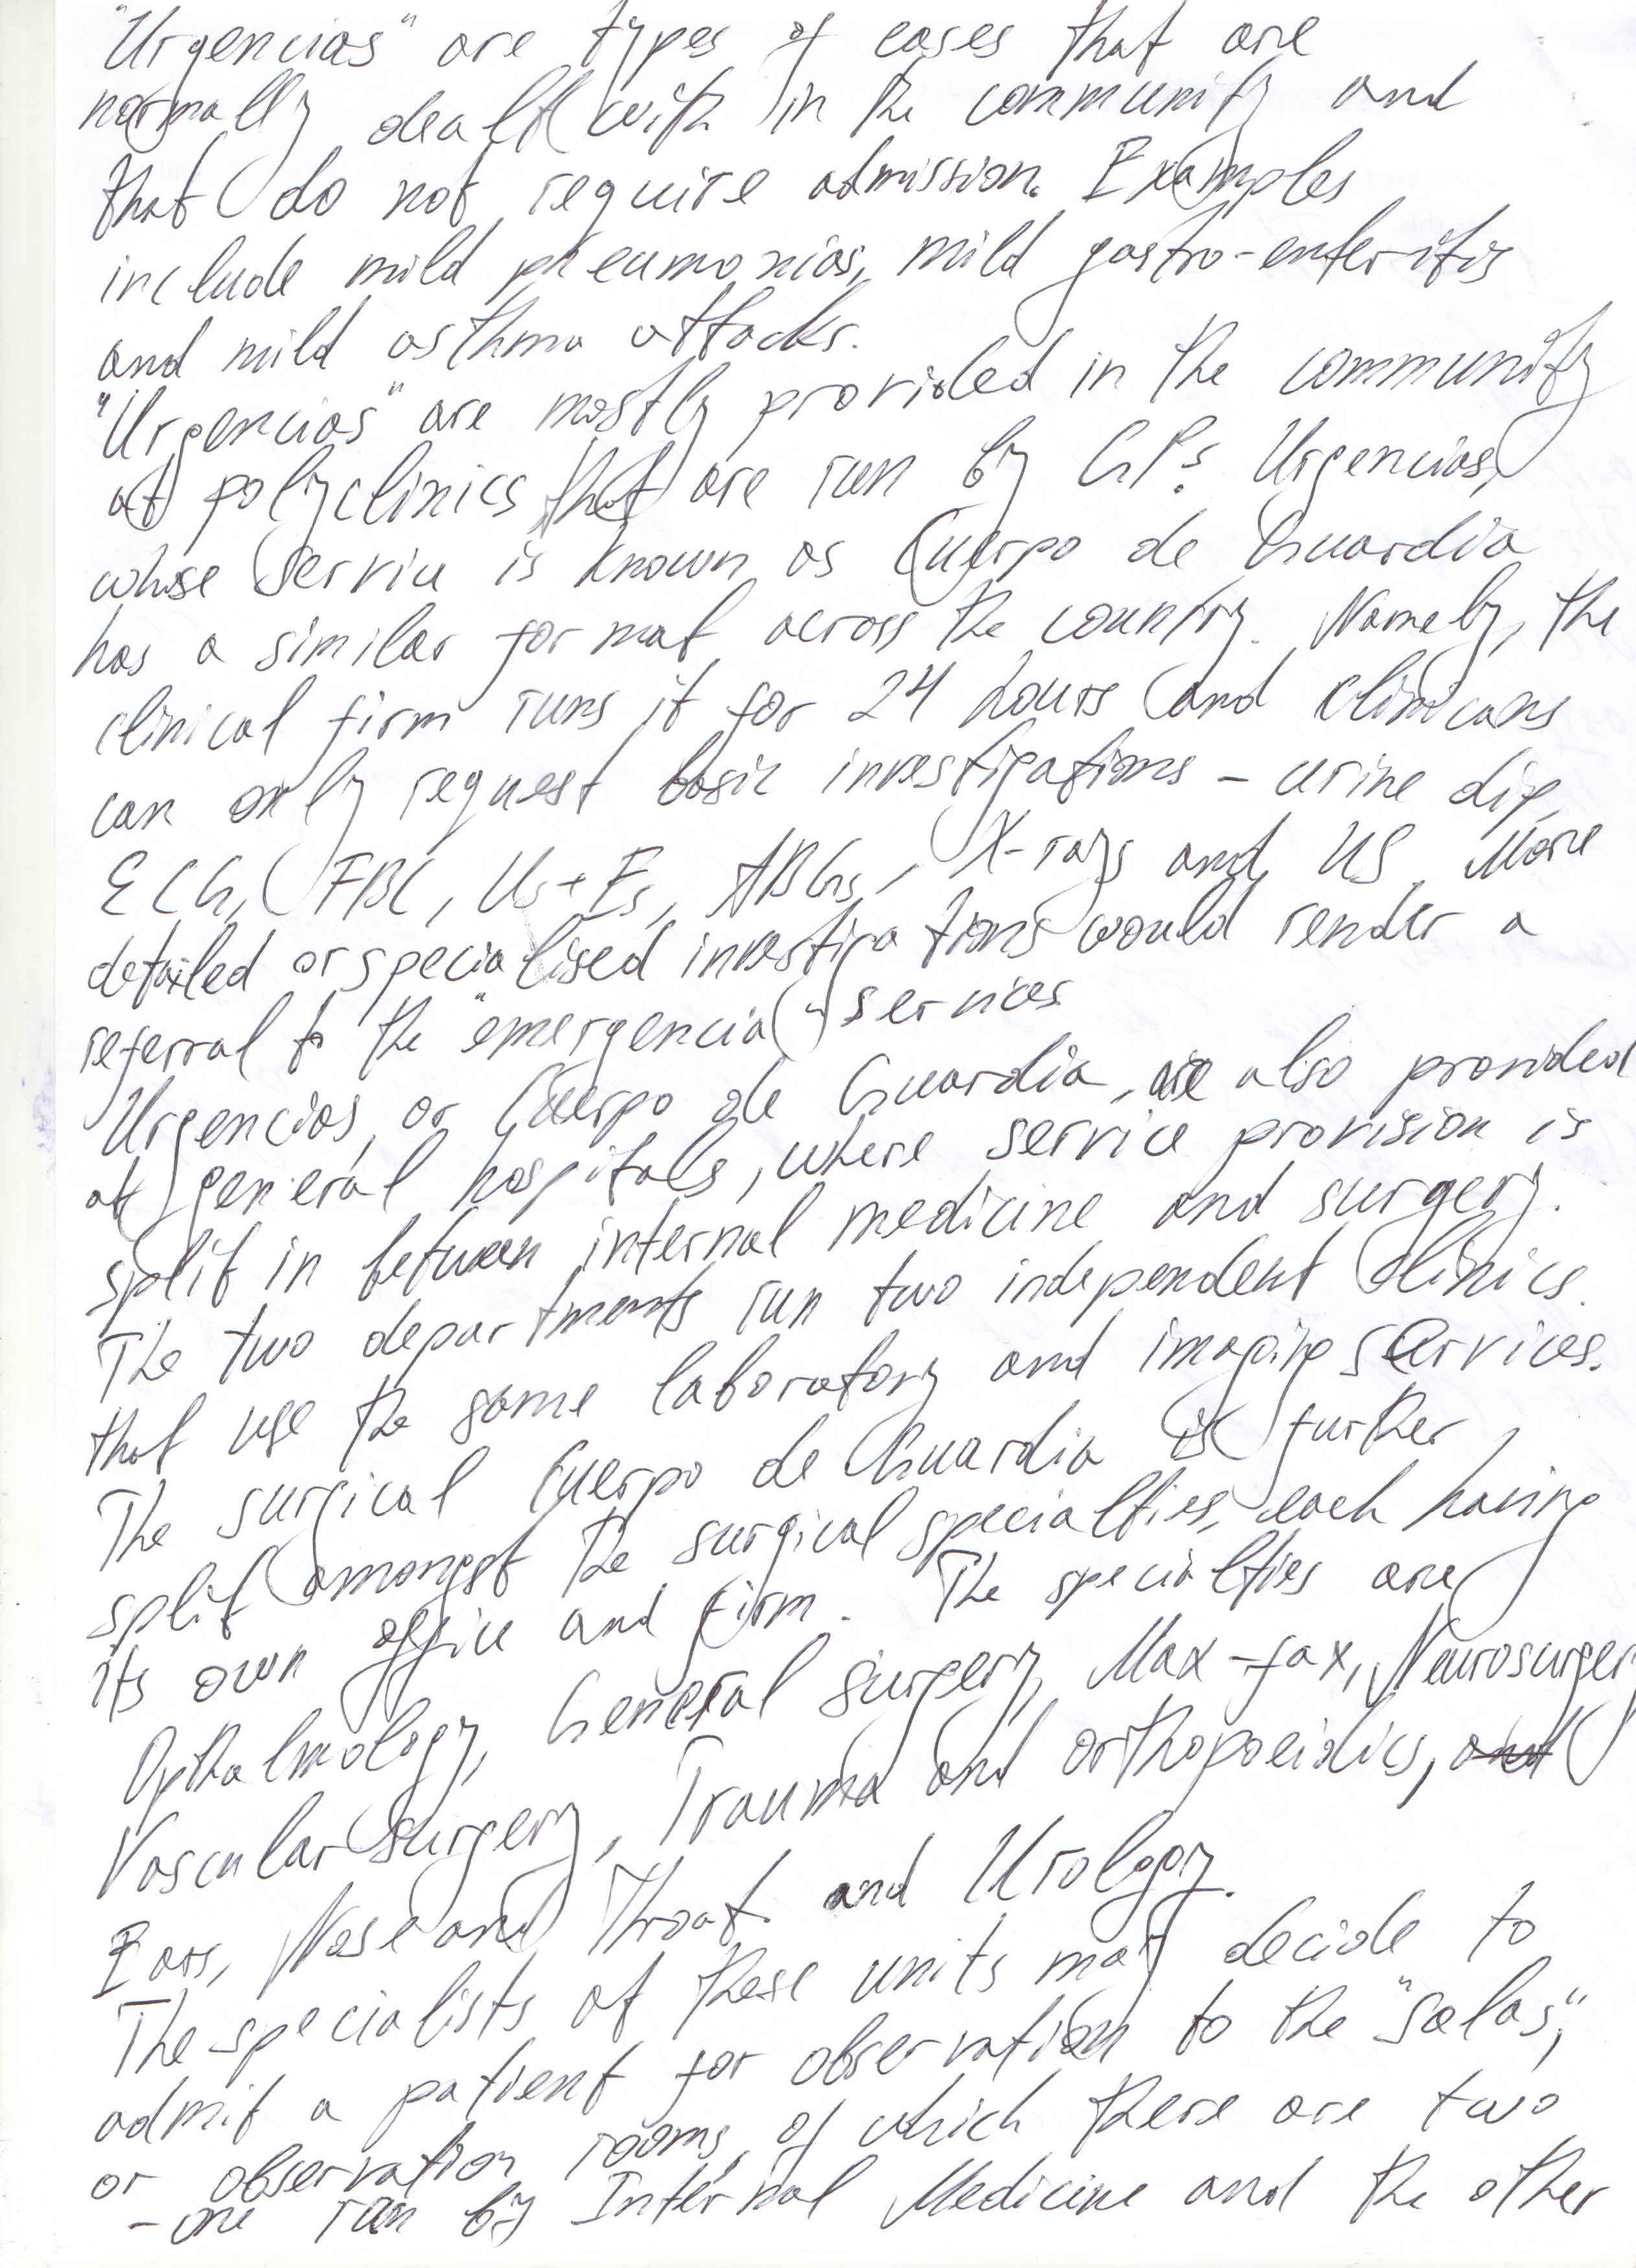 "Urgencias" are types of cases that are
normally dealt with in the community and
that do not require admission. Examples
include mild pneumonias, mild gastro-enteritis
and mild asthma attacks.
"Urgencias" are mostly provided in the community
at polyclinics that are run by GPs. Urgencias,
whose service is known as Cuerpo de Guardia
has a similar format across the country. Namely, the
clinical firm runs it for 24 hours and clinicans
can only request basic investigations - urine dip,
ECG, FBC, Us+Es, ABGs, X-rays and US. More
detailed or specialised investigations would render a
referral to the "emergencia" services
Urgencias, or Cuerpo de Guardia, are also provided
at general hospitals, where service provision is
split in between internal medicine and surgery.
The two departments run two independent clinics.
that use the same laboratory and imaging services.
The surgical Cuerpo de Guardia is further
split amongst the surgical specialties, each having
its own office and firm. The specialties are
Opthalmology, General surgery, Max-fax, Neurosurgery
Vascular surgery, Trauma and orthopaeidics, and
Ears, Nose and Throat and Urology.
The specialists of these units may decide to
admit a patient for observation to the "salas",
or observation rooms, of which there are two
- one run by Internal Medicine and the other